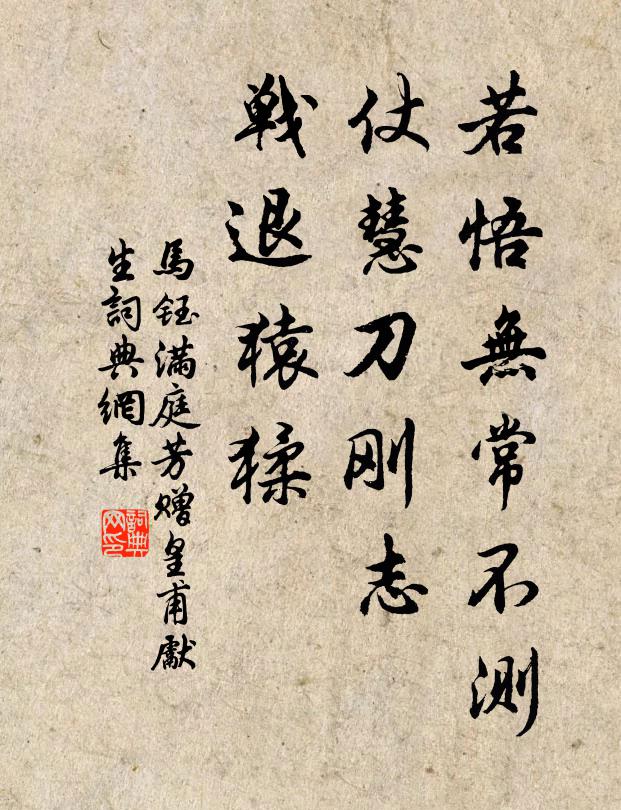 若悟無常不測
仗慧刀刚志
戦退猿猱
馬鈺满庭芳赠皇甫獻
生詞典網集
詞典
网印